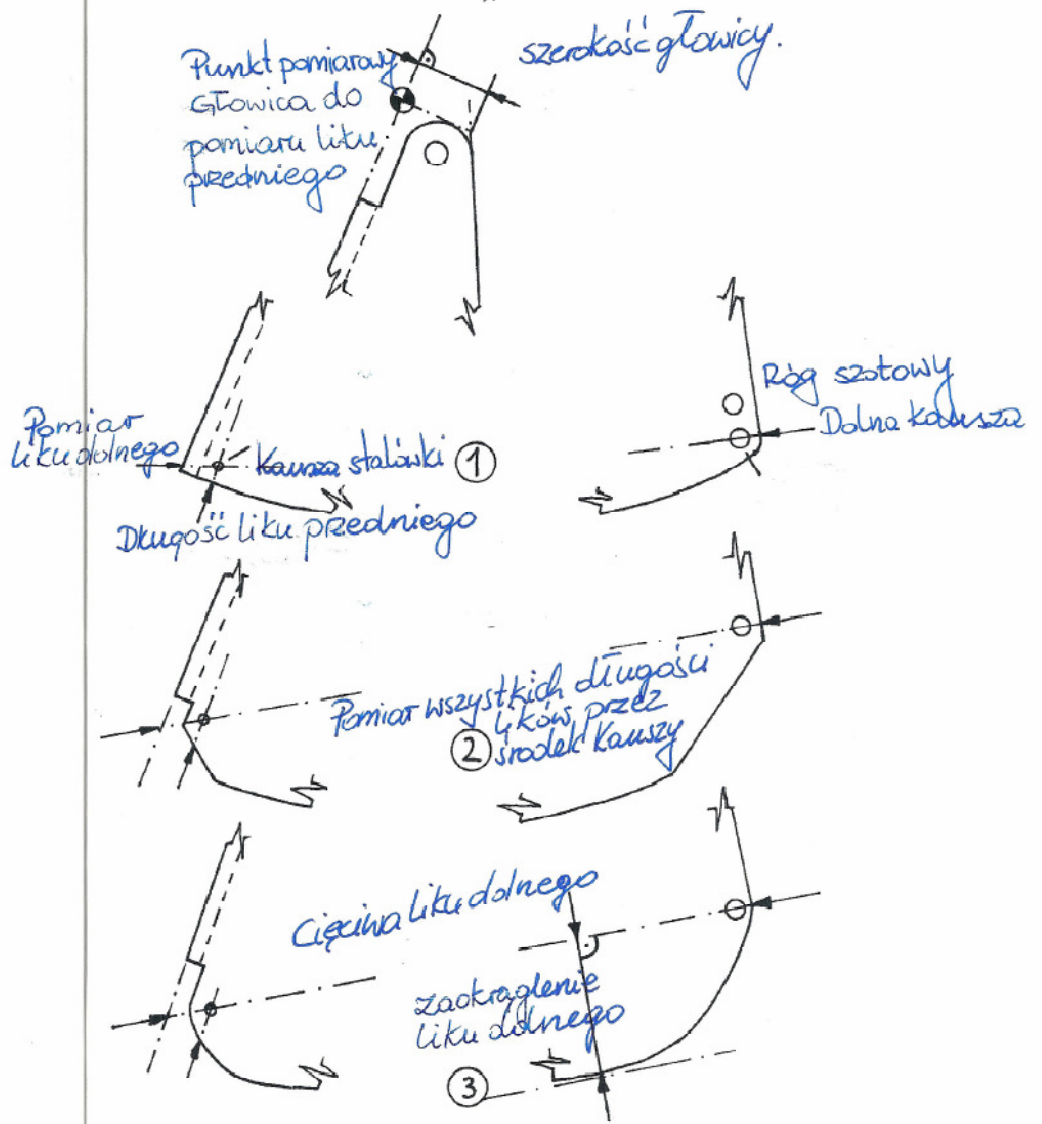 szerokość głowicy.
Punkt pomiarowy
Głowica do
pomiaru liku
przedniego
Róg szotowy
Dolna kausza
Pomiar
liku dolnego
Kausza stalówki ①
Długość liku przedniego
Pomiar wszystkich długości
lików przez
② środek kauszy
Cięciwa liku dolnego
zaokrąglenie
liku dolnego
③